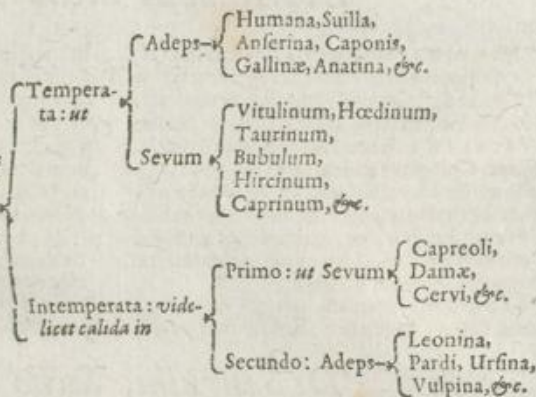 Adeps
Humana, Suilla,
Anſerina, Caponis,
Gallinæ, Anatina, &c.
Tempera-
ta: ut
Sevum
Vitulinum, Hœdinum,
Taurinum,
Bubulum,
Hircinum,
Caprinum, &c.
Intemperata: vide-
licet calida in
Primo: ut Sevum
Capreoli,
Damæ,
Cervi, &c.
Secundo: Adeps
Leonina,
Pardi, Urſina,
Vulpina, &c.